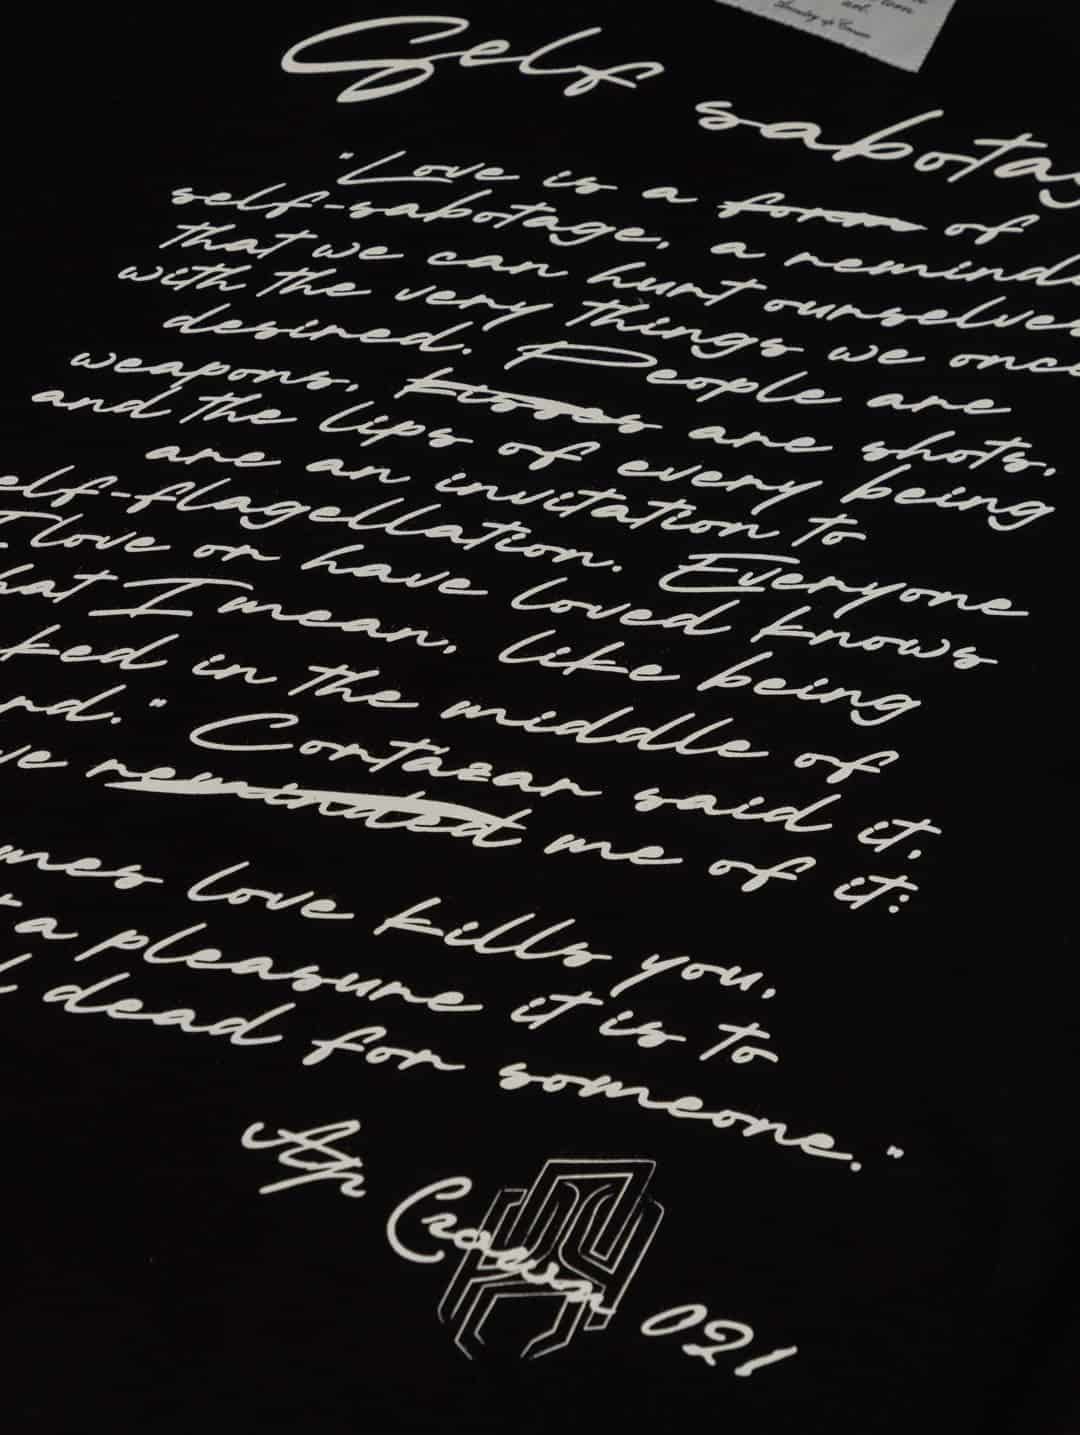 ion
art.
Self sabotag
"Love is a form of
self-sabotage, a reminde
that we can hurt ourselves
with the very things we once
desired. People are
weapons, kisses are shots,
and the lips of every being
are an invitation to
elf-flagellation. Everyone
I love or have loved knows
hat I mean, like being
ked in the middle of
nd." Cortazar said it,
ve reminded me of it:
mes love kills you,
a pleasure it is to
dead for someone."
Ap Crown 021